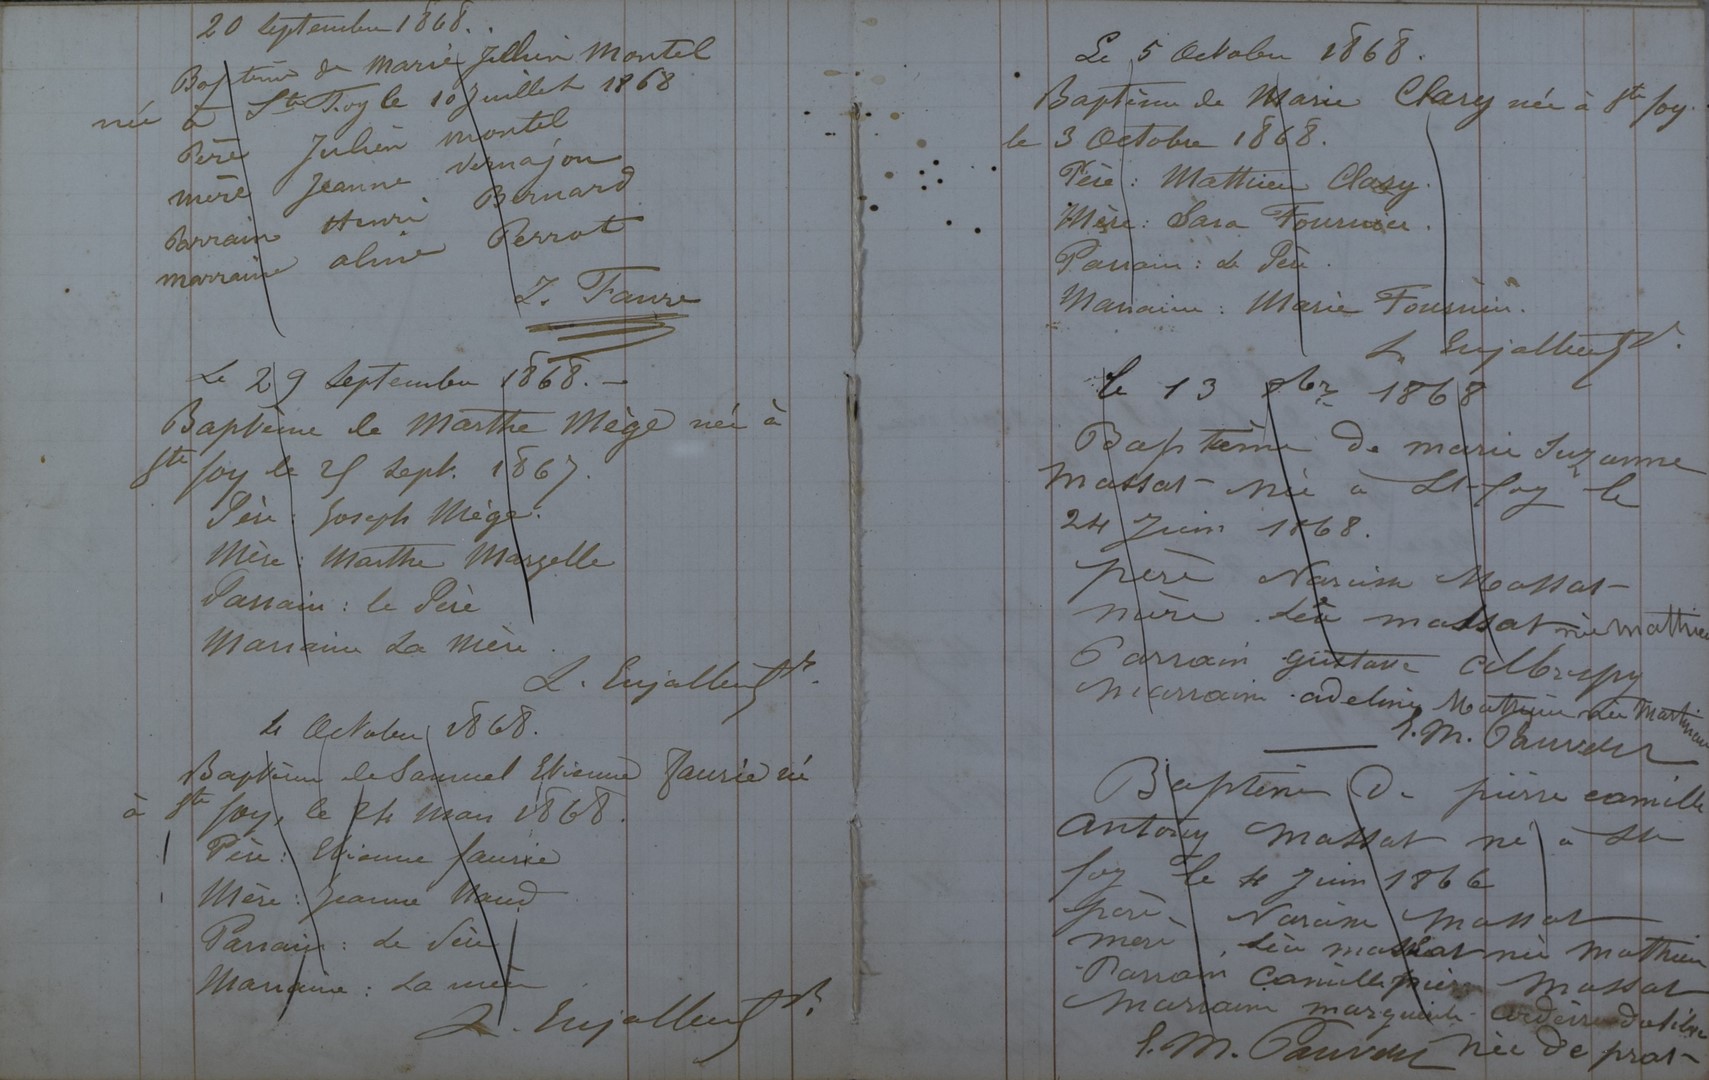 20 Septembre 1868.
Baptême de Marie Montel
née à Ste Foy le 10 juillet 1868
Père Julien Montel
mère Jeanne Vernajou
Parrain Henri Bernard
marraine aline Perrot
J. Faure
Le 29 Septembre 1868. —
Baptême de Marthe Mège née à
Ste foy le 25 Sept. 1867.
Père : Joseph Mège.
Mère : Marthe Margelle
Parrain : le Père
Marraine La Mère.
L. Enjalbert
4 Octobre 1868.
Baptême de Samuel Etienne faurie né
à Ste foy, le 24 Mars 1868.
Père : Etienne faurie
Mère : Jeanne Naud
Parrain : Le Père
Marraine : La mère
L. Enjalbert
Le 5 Octobre 1868.
Baptême de Marie Clary née à Ste foy.
le 3 Octobre 1868.
Père : Mathieu Clary.
Mère : Sara Fournier.
Parrain : Le Père.
Marraine : Marie Fournier.
L. Enjalbert
le 13 8bre 1868
Baptême de marie Suzanne
Massat née à St-foy le
24 Juin 1868.
père Narcisse Massat
mère Léa massat née Mathieu
Parrain gustave
Marraine adeline Mathieu née
Baptême de pierre camille
Antony Massat né à St
foy le 4 Juin 1866
père Narcisse Massat
mère Léa massat née Mathieu
Parrain Camille pierre Massat
Marraine marguerite
née de prat